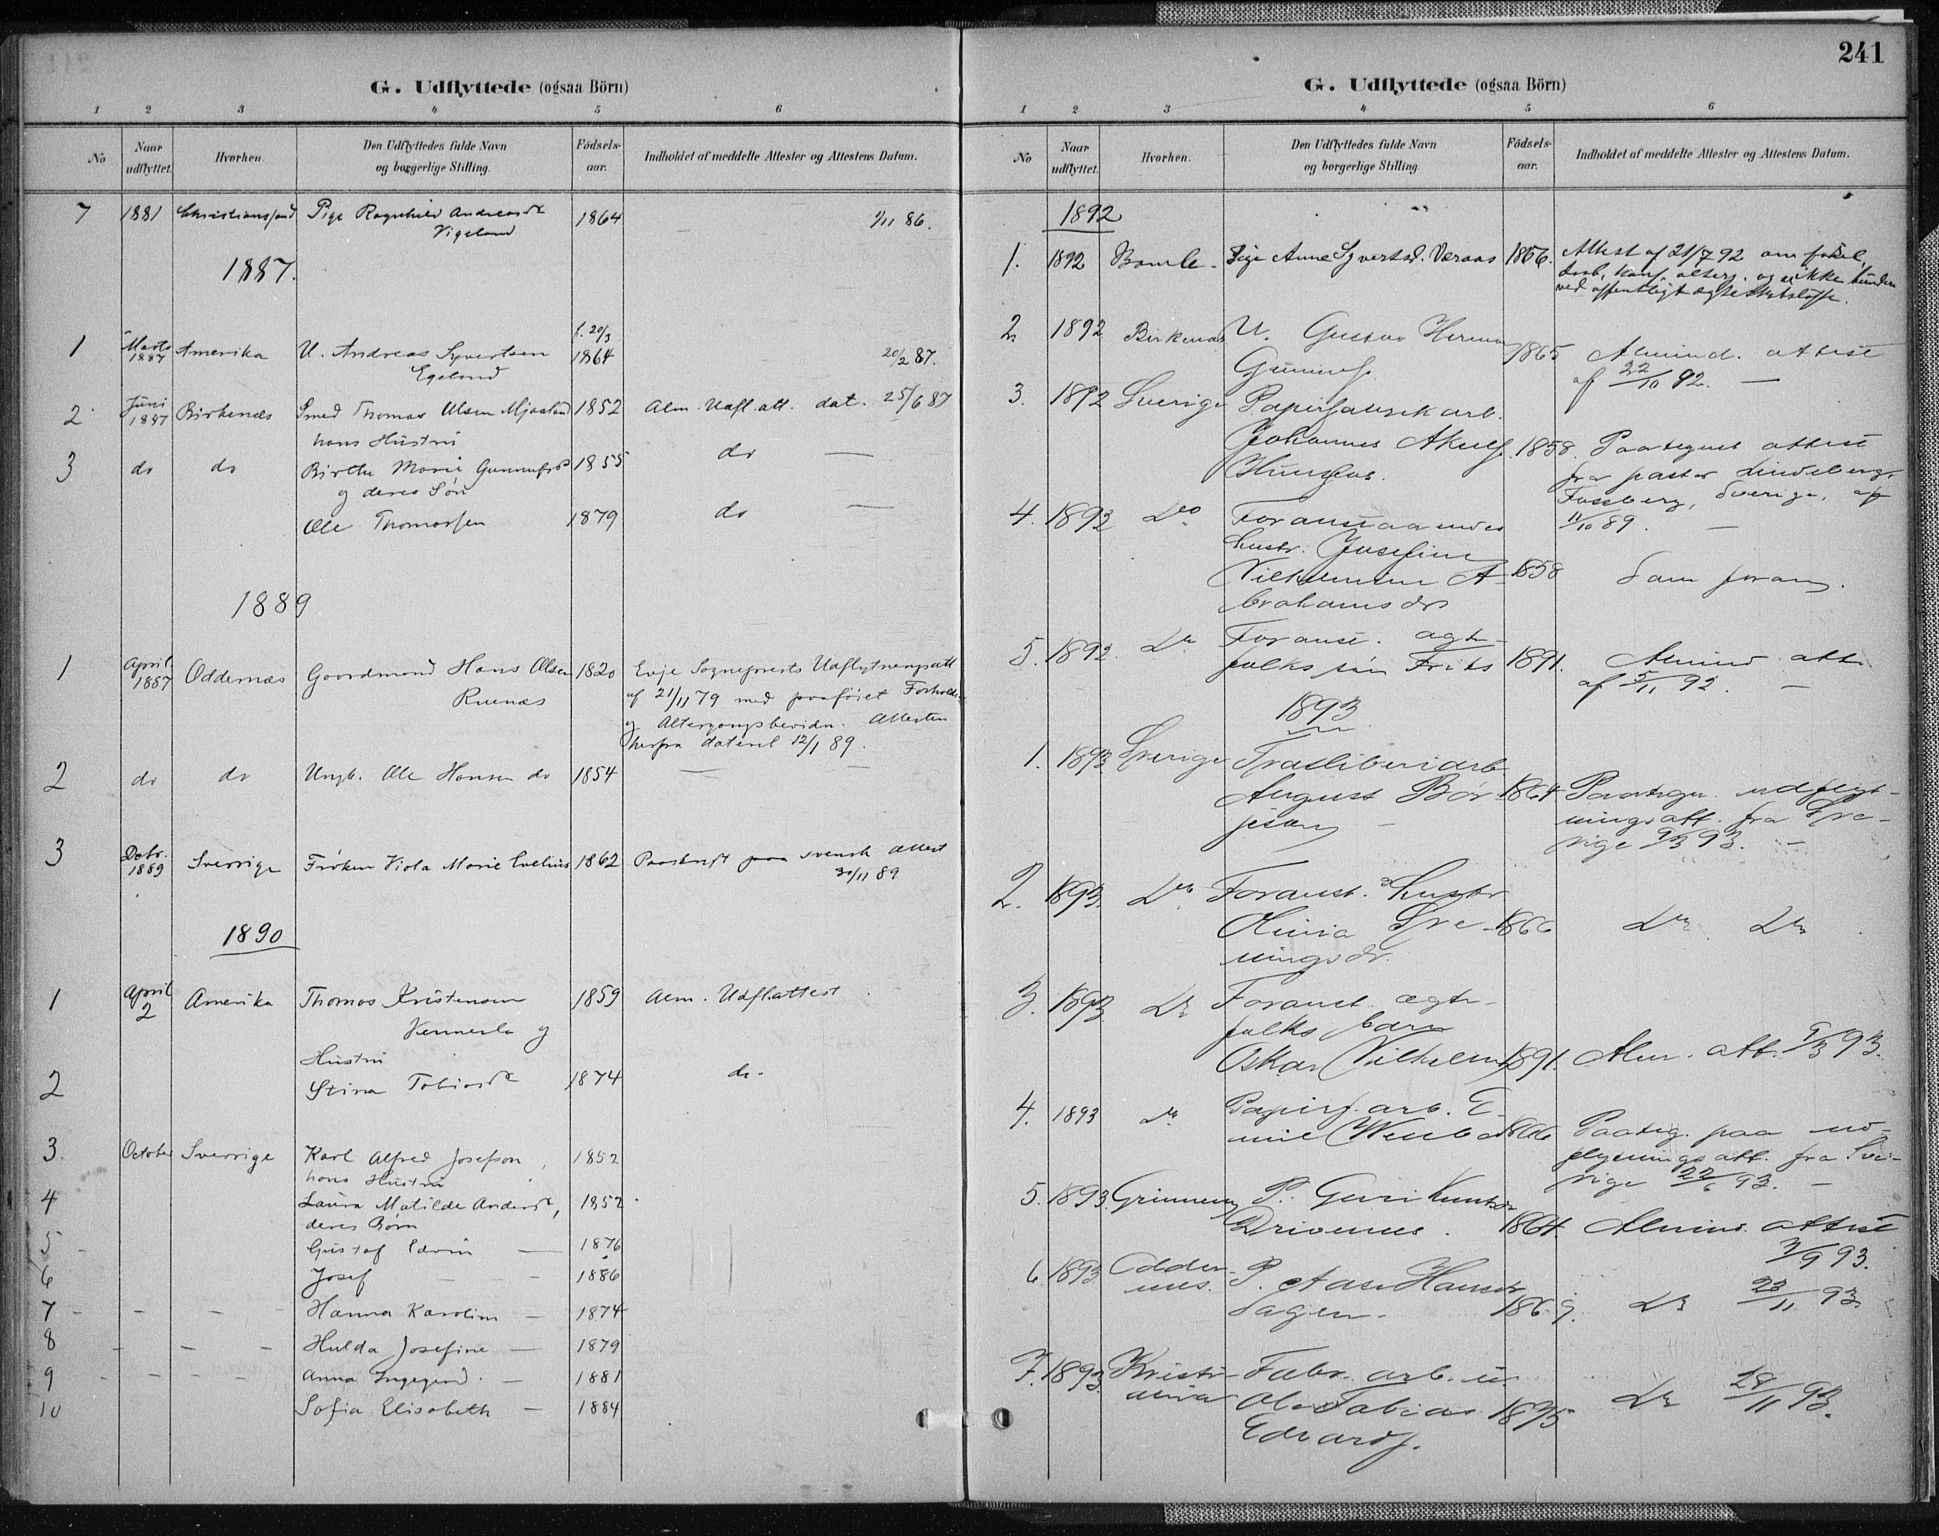 G. Udflyttede (ogsaa Börn)
1 2 3 4 5 6
No Naar udflyttet. Hvorhen. Den Udflyttedes fulde Navn og borgerlige Stilling. Födsels-aar. Indholdet af meddelte Attester og Attestens Datum.
7 1881 Christianssand Pige Ragnhild Andreasdr 1864 1/11 86.
Vigeland
1887.
1 Marts 1887 Amerika U. Andreas Syvertsen f. 20/3 1864 20/2 87.
Egeland
2 Juni 1887 Birkenæs Smed Thomas Olsen Mjaaland 1852 Alm. Udfl.att. dat. 25/6 87
hans Hustru
3 do do Birthe Marie Gunnufsdr 1855 do —
og deres Søn
Ole Thomassen 1879 do —
1889
1 April 1887 Oddernæs Gaardmand Hans Olsen 1820 Evje Sogneprests Udflytningsatt
Ruenæs af 21/11 79 med paaføiet Forholds-
og Altergangsbevidn. Attesten
herfra dateret 12/1 89.
2 do do Ungk. Ole Hansen do 1854 — —
3 Debr. 1889 Sverrige Frøken Viola Marie Evelius 1862 Paaskrift paa svensk Attest
30/11 89
1890
1 April 2 Amerika Thomas Kristensen 1859 Alm. Udfl.attest.
Vennerla og
Hustru
2 Stina Tobiasdr 1874 do-
3. October Sverrige Karl Alfred Josefson, 1852
hans Hustru
4 Laura Matilde Andersdr, 1852
deres Børn
5 - Gustaf Edvin — 1876
6 Josef — — - 1886
7 - - - - Hanna Karolin — 1874
8 - - - Hulda Josefine — 1879
9 - - - - Anna Ingegerd. — 1881
10 Sofia Elisabeth — 1884
241
G. Udflyttede (ogsaa Börn)
1 2 3 4 5 6
No Naar udflyttet. Hvorhen. Den Udflyttedes fulde Navn og borgerlige Stilling. Födsels-aar. Indholdet af meddelte Attester og Attestens Datum.
1892
1. 1892 Bamle - Pige Anne Syvertsd. Væraas 1856. Attest af 21/7 92 om fødsel,
daab, konf, alterg. og ei ikke bunden
ved offentligt ægteskabsløfte.
2 1892 Birkenæs U. Gustav Herman
Gunnufs. 1865 Almind. attest
af 22/10 92. —
3. 1892 Sverige Papirfabrikarb.
Johannes 1858. Paategnet attest
fra pastor Lindeberg,
Sverige, af
11/10 89. —
4. 1892 Do Foranstaaendes
hustr. Josefine
Vilhelmine A- 1858 Som foran.
brahamsdr
5. 1892. Do Foranst. ægte-
folks søn Frits 1891. Almind. att.
af 5/11 92. —
1893
1. 1893. Sverige Træsliberiarb.
August Bör- 1864 Paategn. udflyt-
jeson — ningsatt. fra Sve-
rige 9/3 93. —
2. 1893. Do Foranst. Hustr
Olivia Sve- 1866 Do Do
ningsdr.
3. 1893. Do Foranst. ægte-
folks barn
Oskar Vilhelm 1891. Alm. att. 9/3 93.
4. 1893 Do Papirf. arb. E-
mil 1866 Paateg. paa ud-
flytningsatt. fra Sve-
rige 22/6 93. —
5. 1893. P. Guri Knutsdr
Drivenes. 1864. Almind. attest
7/9 93.
6 1893 Odder-
nes. P. Aase Hansdr
Sagen. 1869. Do 23/11 93.
7. 1893 Kristi-
ania Fabr. arb. u.
Ole Tobias 1875 Do 28/11 93.
Edvards.